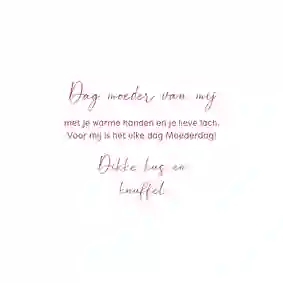 Dag moeder van mij
met je warme handen en je lieve lach.
Voor mij is het elke dag Moederdag!
Dikke kus en
knuffel